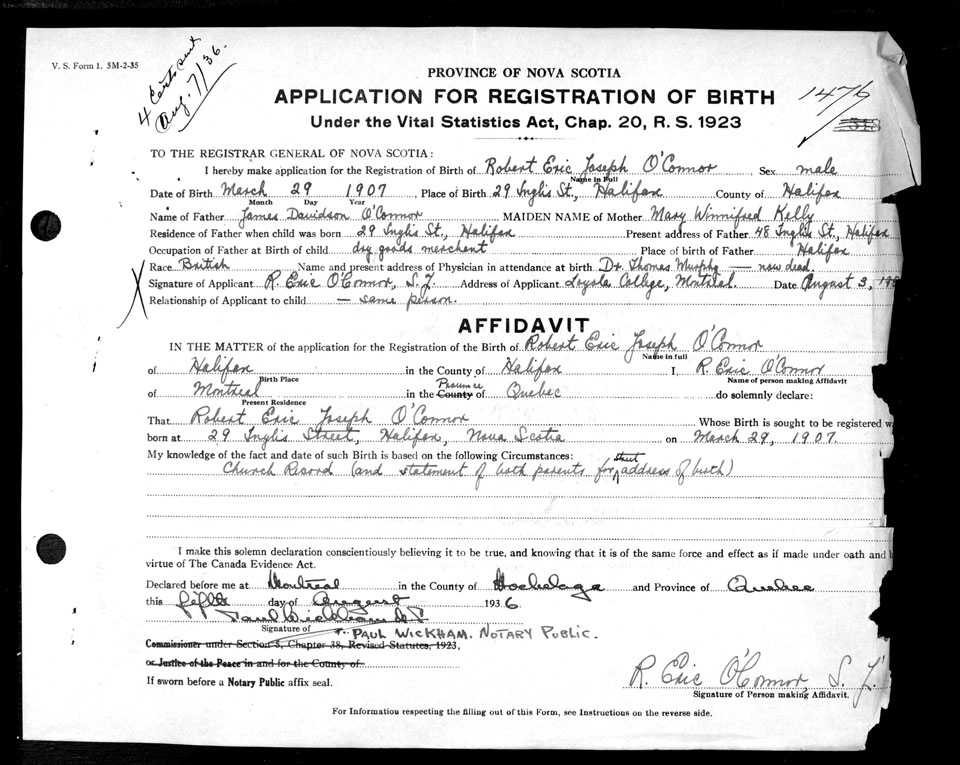 V. S. Form 1. 5M-2-35
4 Certs sent
Aug. 7/36.
PROVINCE OF NOVA SCOTIA
APPLICATION FOR REGISTRATION OF BIRTH
1476
Under the Vital Statistics Act, Chap. 20, R. S. 1923
TO THE REGISTRAR GENERAL OF NOVA SCOTIA:
I hereby make application for the Registration of Birth of Robert Eric Joseph O'Connor Sex male
Name in Full
Date of Birth March 29 1907, Place of Birth 29 Inglis St., Halifax County of Halifax
Month Day Year
Name of Father James Davidson O'Connor MAIDEN NAME of Mother Mary Winnifred Kelly
Residence of Father when child was born 29 Inglis St., Halifax Present address of Father 48 Inglis St., Halifax
Occupation of Father at Birth of child dry goods merchant Place of birth of Father Halifax
Race British Name and present address of Physician in attendance at birth Dr. Thomas Murphy — now dead.
Signature of Applicant R. Eric O'Connor, S.J. Address of Applicant Loyola College, Montreal. Date August 3, 193
Relationship of Applicant to child — same person.
AFFIDAVIT
IN THE MATTER of the application for the Registration of the Birth of Robert Eric Joseph O'Connor
Name in full
of Halifax in the County of Halifax I, R. Eric O'Connor
Birth Place Name of person making Affidavit
Province
of Montreal in the County of Quebec do solemnly declare:
Present Residence
That Robert Eric Joseph O'Connor Whose Birth is sought to be registered w
born at 29 Inglis Street, Halifax, Nova Scotia on March 29, 1907
My knowledge of the fact and date of such Birth is based on the following Circumstances:
street
Church Record (and statement of both parents for address of birth)
I make this solemn declaration conscientiously believing it to be true, and knowing that it is of the same force and effect as if made under oath and b
virtue of The Canada Evidence Act.
Declared before me at Montreal in the County of Hochelaga and Province of Quebec
this fifth day of August 1936.
Paul Wickham N.P.
Signature of PAUL WICKHAM. NOTARY PUBLIC.
Commissioner under Section 5, Chapter 38, Revised Statutes, 1923,
or Justice of the Peace in and for the County of
If sworn before a Notary Public affix seal.
R. Eric O'Connor, S.J.
Signature of Person making Affidavit.
For Information respecting the filling out of this Form, see Instructions on the reverse side.